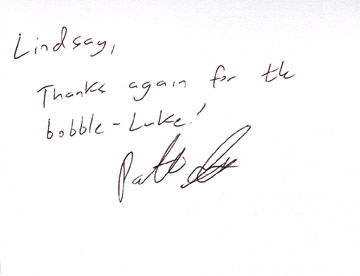 Lindsay,
Thanks again for the
bobble-Luke!